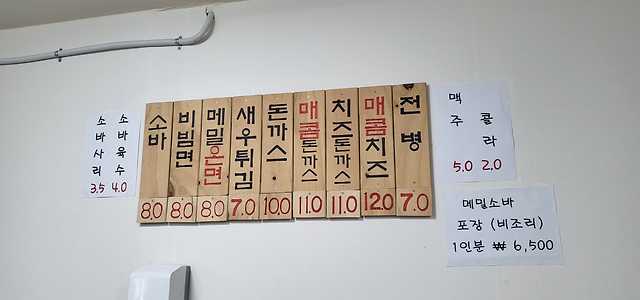 소바사리 3.5
소바육수 4.0
소바 8.0
비빔면 8.0
메밀온면 8.0
새우튀김 7.0
돈까스 10.0
매콤돈까스 11.0
치즈돈까스 11.0
매콤치즈 12.0
전병 7.0
맥주 5.0
콜라 2.0
메밀소바
포장 (비조리)
1인분 ₩ 6,500